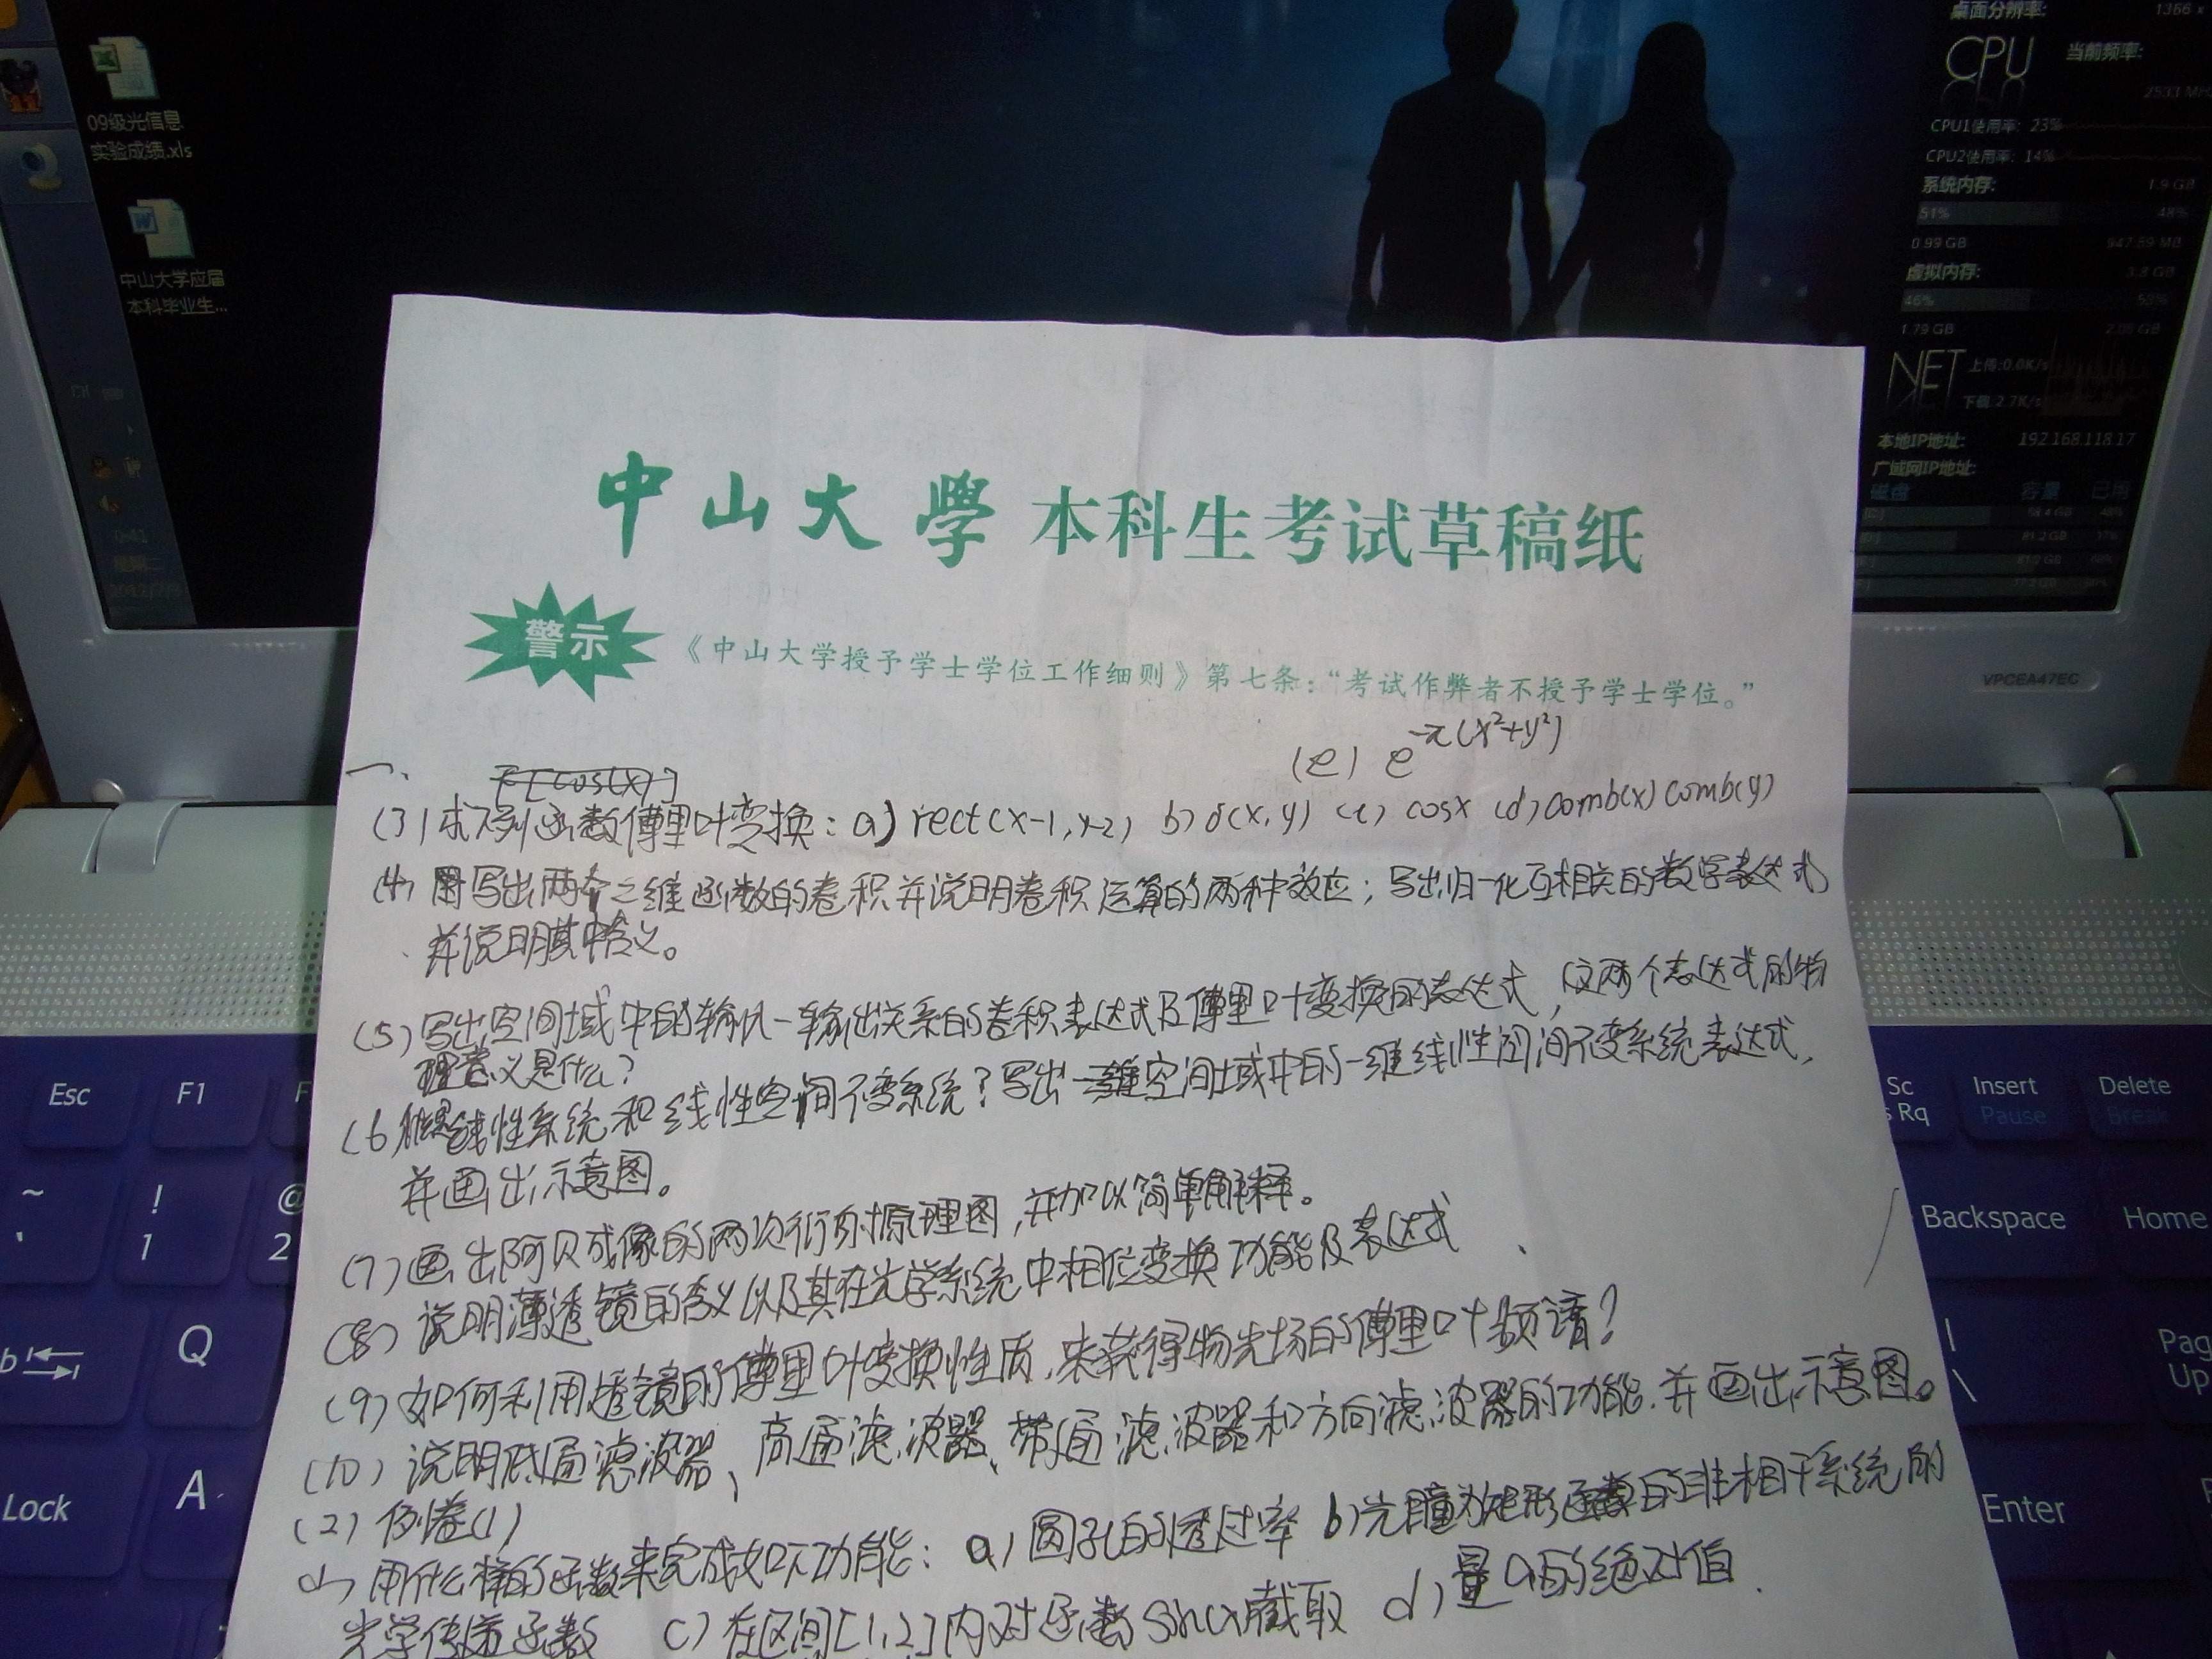 09级光信息
实验成绩.xls
中山大学应届
本科毕业生...
桌面分辨率: 1366 x
CPU 当前频率:
2533 MHz
CPU1使用率: 23%
CPU2使用率: 14%
系统内存: 1.9 GB
51% 48%
0.99 GB 947.69 MB
虚拟内存: 3.8 GB
46% 53%
1.79 GB 2.05 GB
NET 上传:0.0K/s
下载:2.7K/s
本地IP地址: 192.168.118.17
广域网IP地址:
磁盘 容量 已用
VPCEA47EC
中山大學 本科生考试草稿纸
警示 《中山大学授予学士学位工作细则》第七条：“考试作弊者不授予学士学位。”
(e) e^{-π(x²+y²)}
一、 F[cos(x)]
(3) 求下列函数傅里叶变换：a) rect(x-1, y-2) b) δ(x,y) (c) cosx (d) comb(x) comb(y)
(4) 写出两个二维函数的卷积并说明卷积运算的两种效应；写出归一化互相关的数学表达式
并说明其含义。
(5) 写出空间域中的输入—输出关系的卷积表达式及傅里叶变换的表达式，这两个表达式的物
理意义是什么?
(6) 线性系统和线性空间不变系统? 写出空间域中的一维线性空间不变系统表达式，
并画出示意图。
(7) 画出阿贝成像的两次衍射原理图，并加以简单解释。
(8) 说明薄透镜的含义以及其在光学系统中相位变换功能及表达式
(9) 如何利用透镜的傅里叶变换性质，来获得物光场的傅里叶频谱?
(10) 说明低通滤波器、高通滤波器、带通滤波器和方向滤波器的功能，并画出示意图。
(2) 例卷(1)
(1) 用什么样的函数来完成如下功能：a) 圆孔的透过率 b) 光瞳为矩形函数的非相干系统的
光学传递函数 c) 在区间[1,2]内对函数sinx截取 d) 量a的绝对值
Esc
F1
Sc
s Rq
Insert
Pause
Delete
Break
~
`
!
1
@
2
Backspace
Home
Q
|
\
Pag
Up
Lock
A
Enter